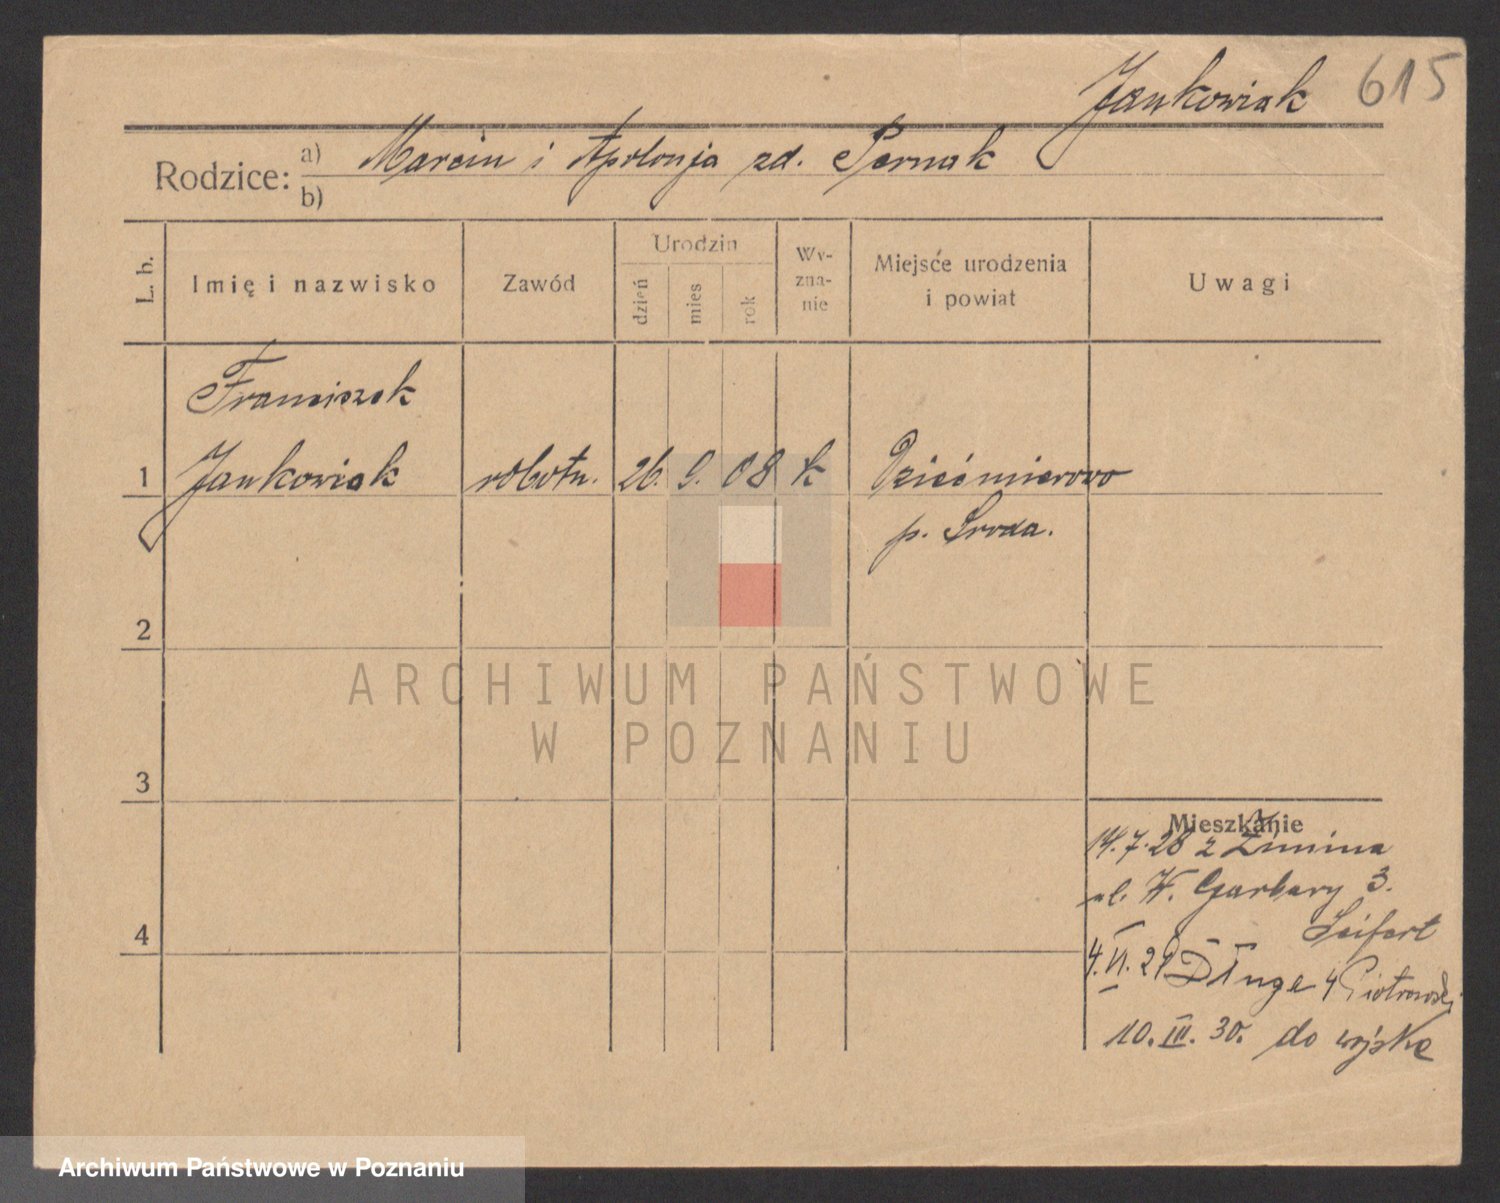 Jankowiak 615
Rodzice: a) Marcin i Apolonja zd. Pernak
b)
L. b.
Imię i nazwisko
Zawód
Urodzin
dzień
mies
rok
Wy-
zna-
nie
Miejsce urodzenia
i powiat
Uwagi
Franciszek
1 Jankowiak robotn. 26. 9. 08 k Dziećmierowo
p. Sroda.
2
ARCHIWUM PAŃSTWOWE
W POZNANIU
3
Mieszkanie
14.7.28 z Żmina
ul. W. Garbary 3.
Seifert
4
4.VI.29 Długa 4 Piotrowski
10.III.30. do wojska
Archiwum Państwowe w Poznaniu